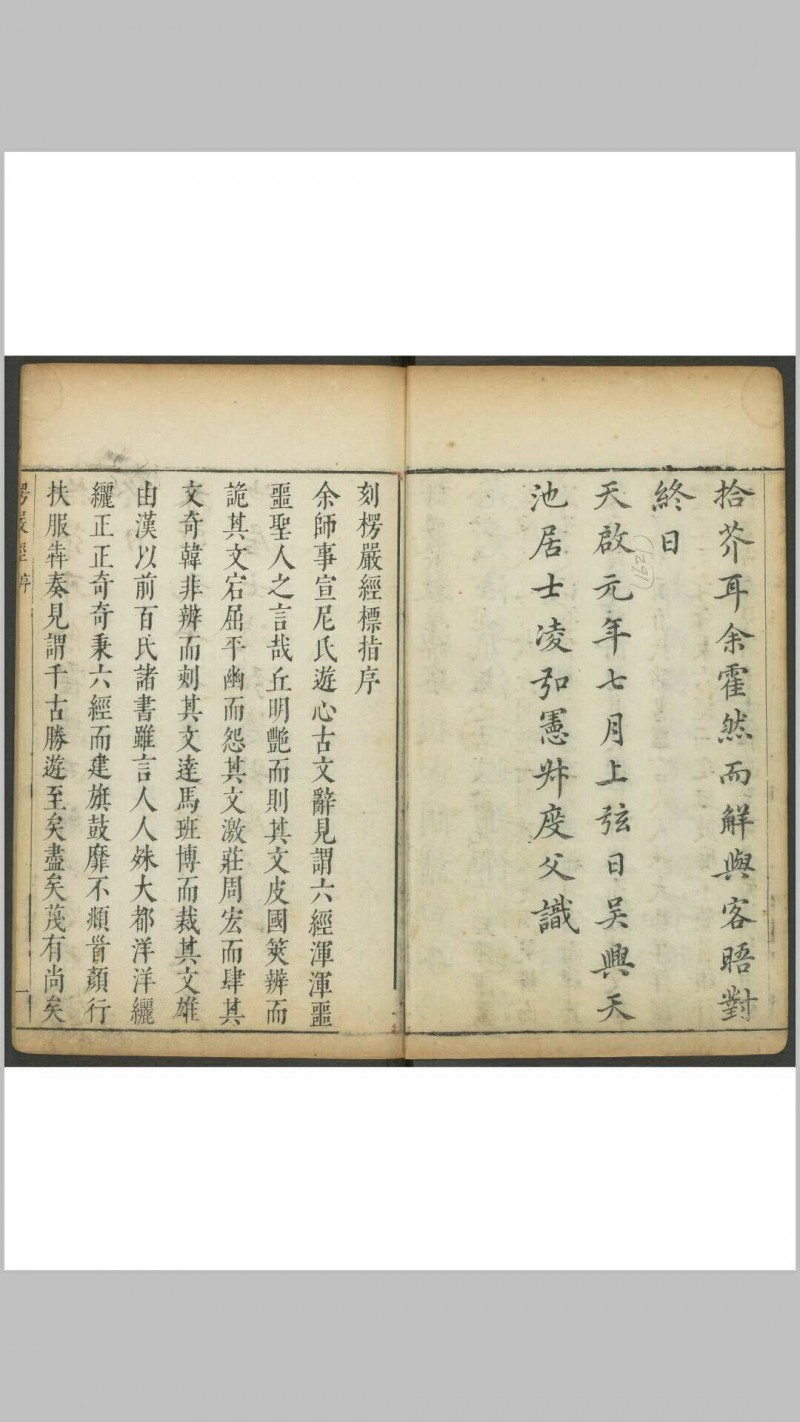 拾芥耳余霍然而解與客晤對
終日
天啟元年七月上弦日吳興天
池居士凌弘憲叔度父識
刻楞嚴經標指序
余師事宣尼氏遊心古文辭見謂六經渾渾噩
噩聖人之言哉丘明艷而則其文皮國筴辨而
詭其文宕屈平幽而怨其文激莊周宏而肆其
文奇韓非辨而刻其文達馬班博而裁其文雄
由漢以前百氏諸書雖言人人姝大都洋洋纚
纚正正奇奇秉六經而建旗鼓靡不頫首顏行
扶服犇奏見謂千古勝遊至矣盡矣蔑有尚矣
楞嚴經 序
一